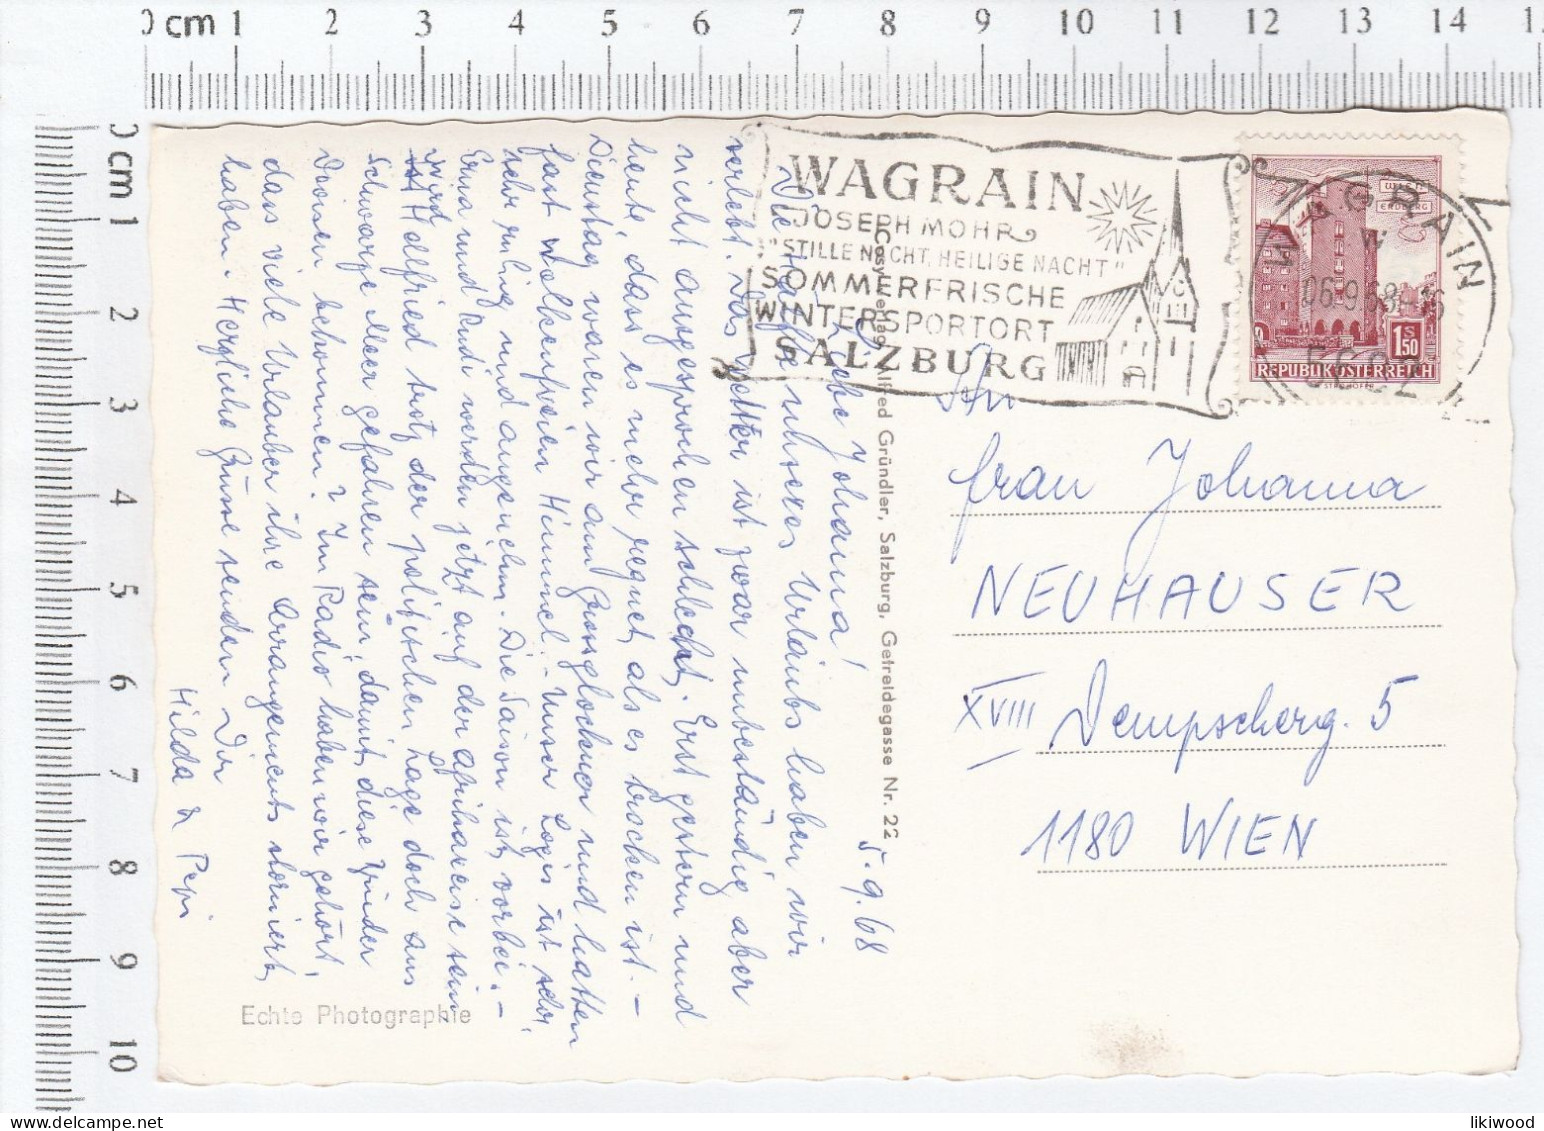 0 cm 1 2 3 4 5 6 7 8 9 10 11 12 13 14 15
0 cm 1 2 3 4 5 6 7 8 9 10
WAGRAIN
JOSEPH MOHR
"STILLE NACHT, HEILIGE NACHT"
SOMMERFRISCHE
WINTERSPORTORT
SALZBURG
WAGRAIN
06.-9.68-16
5602
WIEN
ERDBERG
1 S 50
REPUBLIK ÖSTERREICH
STROHOFER
An
Frau Johanna
NEUHAUSER
XVIII Dempscherg. 5
1180 WIEN
Cosy-Verlag Alfred Gründler, Salzburg, Getreidegasse Nr. 22
5.9.68
Liebe Johanna!
Die Hälfte unseres Urlaubs haben wir
verlebt. Das Wetter ist zwar unbeständig aber
nicht ausgesprochen schlecht. Erst gestern und
heute, dass es mehr regnet als es trocken ist. –
Dienstag waren wir am Grossglockner und hatten
fast wolkenfreien Himmel. – Unser Logis ist sehr,
sehr ruhig und angenehm. Die Saison ist vorbei. –
Erna und Rudi werden jetzt auf der Afrikareise sein
wird Halfried trotz der politischen Lage doch ans
Schwarze Meer gefahren sein, damit diese Kinder
Devisen bekommen? Im Radio haben wir gehört,
dass viele Urlauber ihre Arrangements storniert
haben. Herzliche Grüsse senden Dir
Hilda & Pepi
Echte Photographie
likiwood